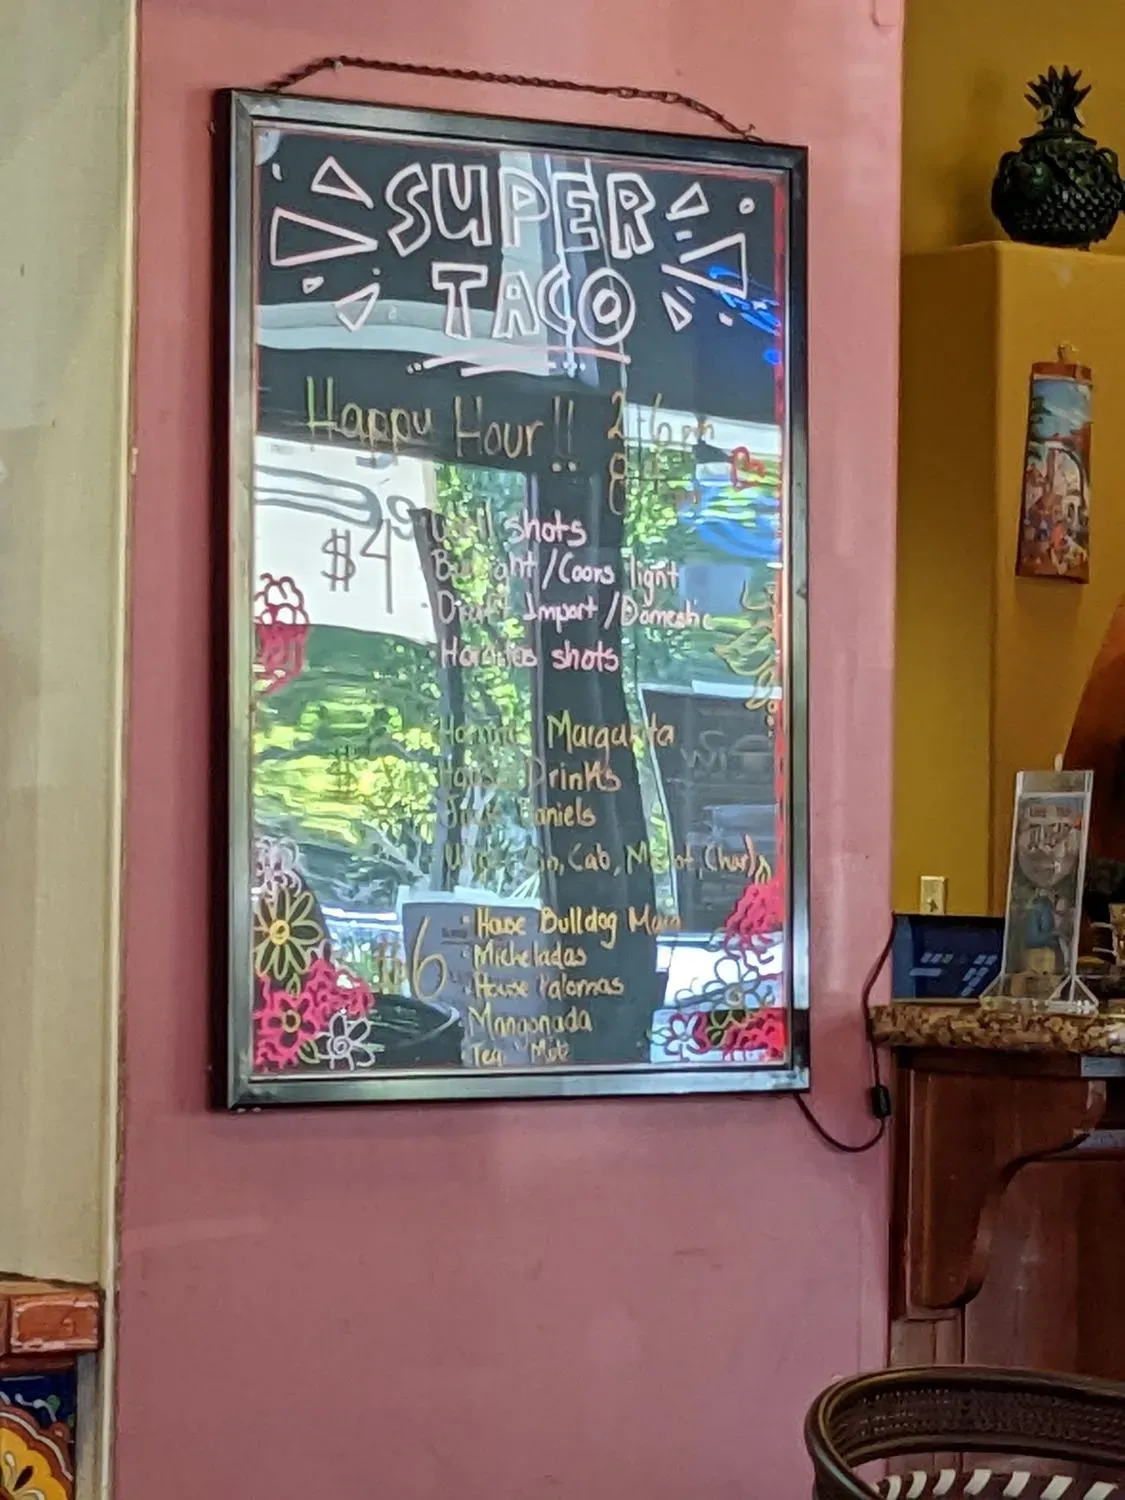 SUPER
TACO
Happy Hour!! 2-6pm
$4 Well shots
Bud light/Coors light
Draft Import/Domestic
shots
Margarita
House Drinks
Jack Daniels
Cab, Merlot, Chard
$6 House Bulldog Marg
Micheladas
House Palomas
Mangonada